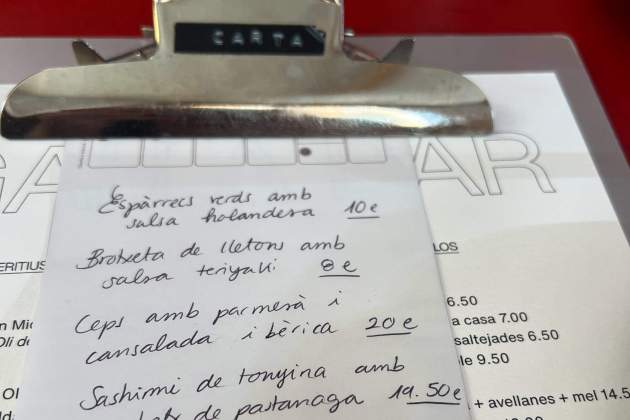 CARTA
Espàrrecs verds amb
salsa holandera 10€
Brotxeta de lletons amb
salsa teriyaki 8€
Ceps amb parmesà i
cansalada ibèrica 20€
Sashimi de tonyina amb
de pastanaga 19.50€
ERITIUS
LOS
6.50
a casa 7.00
saltejades 6.50
le 9.50
+ avellanes + mel 14.5